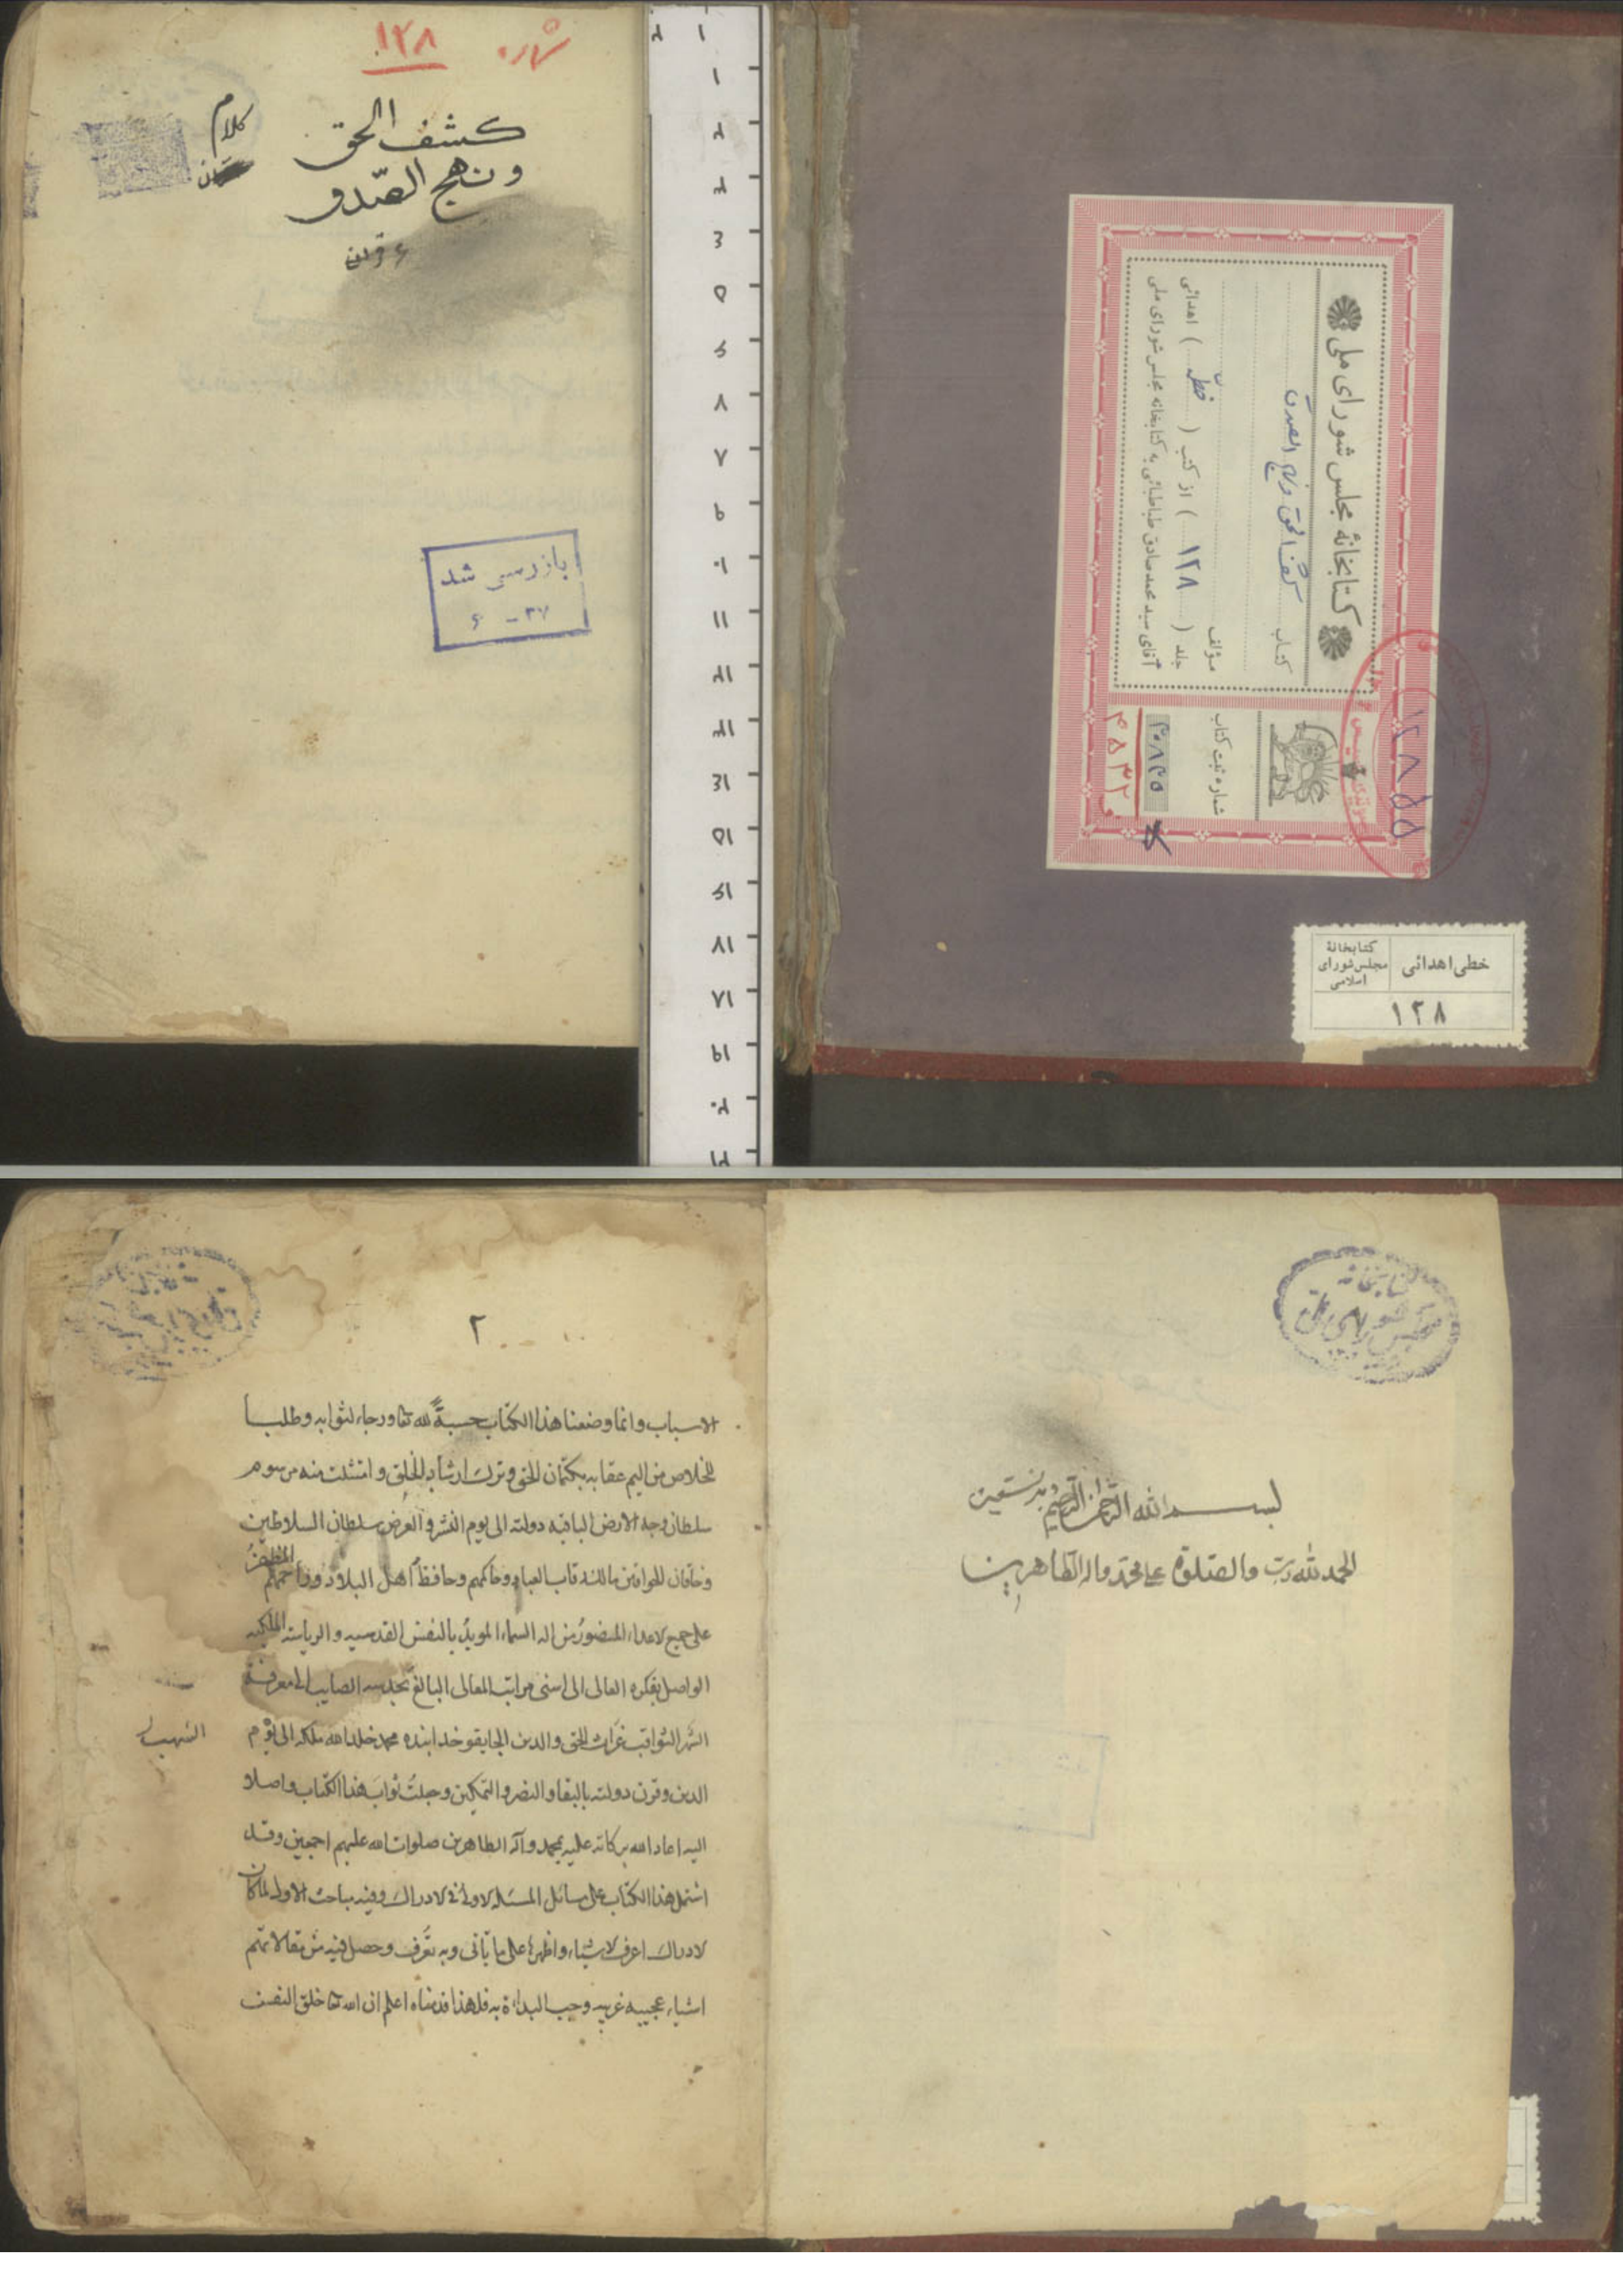 شماره ۱۲۸
كشف الحق
ونهج الصّدق
كلام
بازرسی شد
۶ - ۳۷
کتابخانهٔ مجلس شورای ملی
کتاب كشف الحق ونهج الصدق
مؤلف
جلد ( ۱۲۸ ) از کتب ( خطی ) اهدائی
آقای سید محمدصادق طباطبائی به کتابخانه مجلس شورای ملی
شماره ثبت کتاب
۳۰۸۲۵
۱۲۸۵۵
خطی اهدائی
کتابخانهٔ
مجلس شورای
اسلامی
۱۲۸
۱
۲
۳
٤
۵
۶
۷
۸
۹
۱۰
۱۱
۱۲
۱۳
۱٤
۱۵
۱۶
۱۷
۱۸
۱۹
۲۰
۲۱
کتابخانه
مجلس شورای ملی
بسم الله الرحمن الرحيم وبه نستعين
الحمد لله رب والصلوة على محمد واله الطاهرين
۲
الاسباب وانما وضعنا هذا الكتاب حسبةً لله تعا ورجاء لثوابه وطلبا
للخلاص من اليم عقابه بكتمان الحق وترك ارشاد الخلق وامتثلت فيه مرسوم
سلطان وجه الارض الباقيه دولته الى يوم النشر والعرض سلطان السلاطين
وخاقان الخواقين مالك رقاب العباد وحاكمهم وحافظ اهل البلاد وراحمهم المظفر
على جميع الاعداء المنصور من اله السماء المويد بالنفس القدسيه والرياسة الملكيه
الواصل بفكره العالى الى اسنى مراتب المعالى البالغ بحدسه الصايب الى معرفة
الشهب
الثواقب غياث الحق والدين الجايتو خدابنده محمد خلد الله ملكه الى يوم
الدين وقرن دولته بالبقا والنصر والتمكين وجعلت ثواب هذا الكتاب واصلا
اليه اعاد الله بركاته عليه بمحمد وآله الطاهرين صلوات الله عليهم اجمعين وقد
اشتمل هذا الكتاب على مسائل المسئلة الاولى فى الادراك وفيه مباحث الاول لما كان
الادراك اعرف الاشياء واظهرها على ما ياتى وبه تعرف وحصل فيه من مقالاتهم
اشياء عجيبه غريبه وجب البداة به فلهذا قدمناه اعلم ان الله تعا خلق النفس